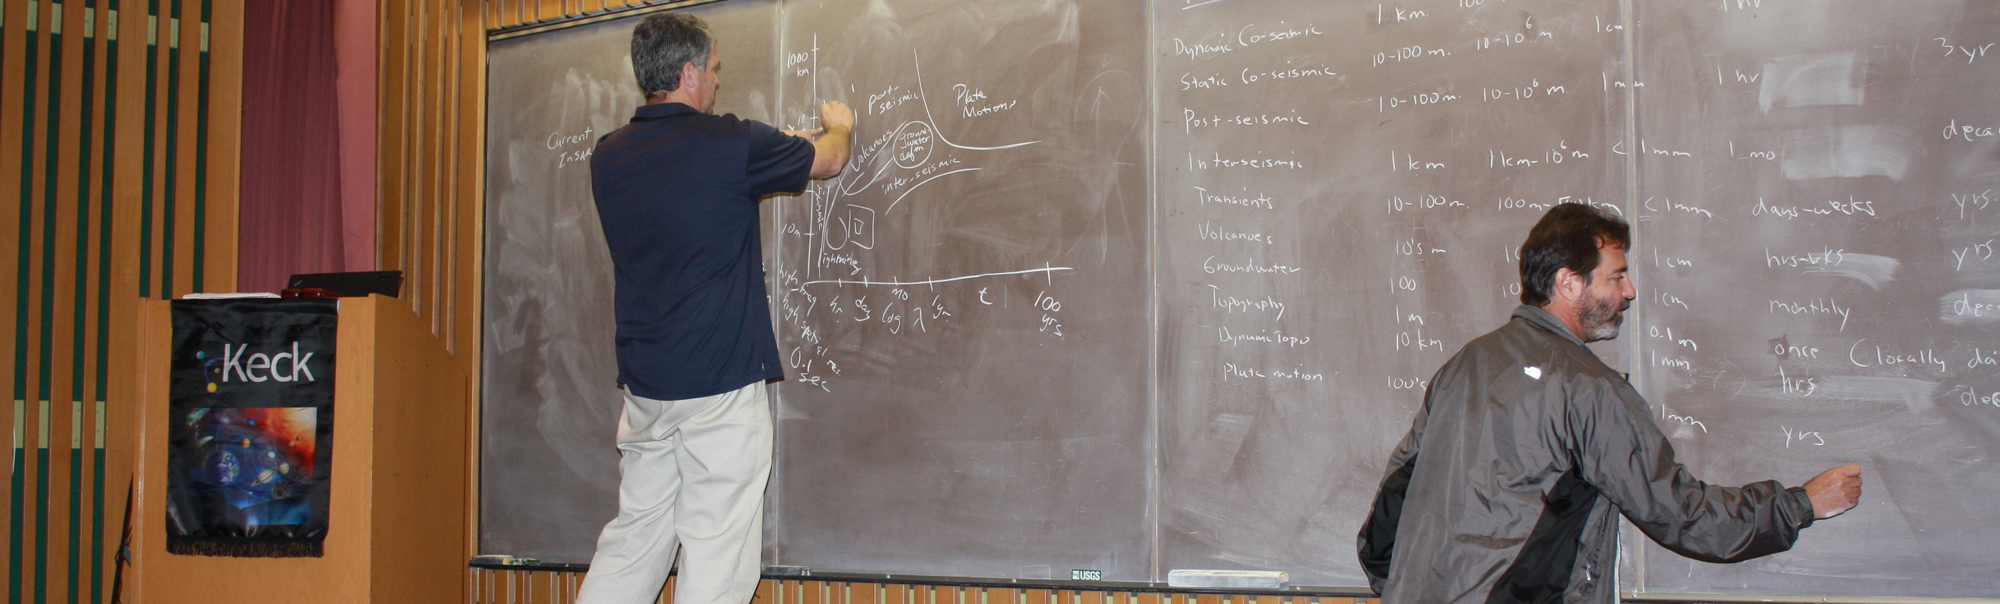 Keck
Current
InSAR
1000
km
10
10 m
post-
seismic
Plate
Motions
Volcanoes
Ground
water
inter-seismic
lightning
high
hr
day
mo
1 yr
t
100
yrs
log λ
0.1
sec
USGS
1 km
1 hr
Dynamic Co-seismic 1 km.
Static Co-seismic 10-100 m. 10-10⁶ m 1 cm 3 yr
Post-seismic 10-100 m. 10-10⁶ m 1 mm 1 hr
Inter-seismic 1 km 1km-10⁶ m < 1 mm 1 mo. deca
Transients 10-100 m. 100m- < 1mm days-weeks yrs.
Volcanoes 10's m 1 cm hrs-wks yrs
Groundwater 100 1 cm monthly dec
Topography 1 m 0.1 m once (locally da
Dynamic Topo 10 km 1 mm hrs dec
Plate motion 100's 1 mm yrs